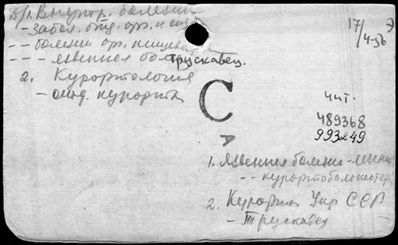 1. Внутр. болезни
- забол. отд. орг. и сист.
-- болезни орг. пищевар.
--- язвенная бол.
Трускавец.
2. Курортология
- отд. курорты
17/4-56
Э
С
А
чит.
489368
993249
1. Язвенная болезнь -
-- курортобальнеотер.
2. Курорты Укр ССР
- Трускавец